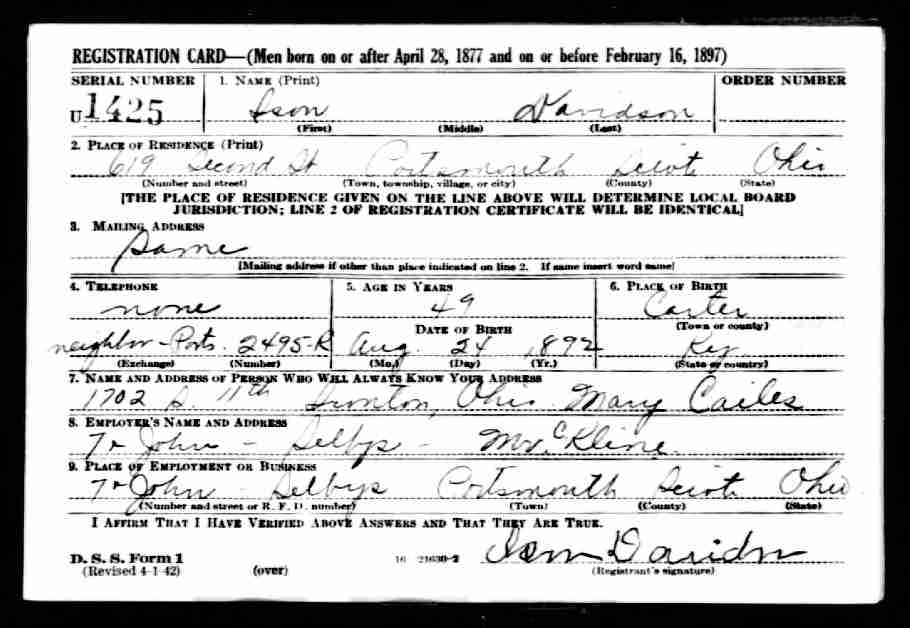 REGISTRATION CARD—(Men born on or after April 28, 1877 and on or before February 16, 1897)
SERIAL NUMBER 1. NAME (Print) ORDER NUMBER
U1425 Ison Davidson
(First) (Middle) (Last)
2. PLACE OF RESIDENCE (Print)
619 Second St Portsmouth Scioto Ohio
(Number and street) (Town, township, village, or city) (County) (State)
[THE PLACE OF RESIDENCE GIVEN ON THE LINE ABOVE WILL DETERMINE LOCAL BOARD
JURISDICTION; LINE 2 OF REGISTRATION CERTIFICATE WILL BE IDENTICAL]
3. MAILING ADDRESS
Same
[Mailing address if other than place indicated on line 2. If same insert word same]
4. TELEPHONE 5. AGE IN YEARS 6. PLACE OF BIRTH
none 49 Carter
DATE OF BIRTH (Town or county)
neighbor - Ports. 2495-R Aug 24 1892 Ky
(Exchange) (Number) (Mo.) (Day) (Yr.) (State or country)
7. NAME AND ADDRESS OF PERSON WHO WILL ALWAYS KNOW YOUR ADDRESS
1702 S. 11th Ironton, Ohio Mary Cailes
8. EMPLOYER'S NAME AND ADDRESS
John - Selbys - Mr. Kline
9. PLACE OF EMPLOYMENT OR BUSINESS
John - Selbys Portsmouth Scioto Ohio
(Number and street or R. F. D. number) (Town) (County) (State)
I AFFIRM THAT I HAVE VERIFIED ABOVE ANSWERS AND THAT THEY ARE TRUE.
D. S. S. Form 1 16—21630-2 Ison Davidson
(Revised 4-1-42) (over) (Registrant's signature)